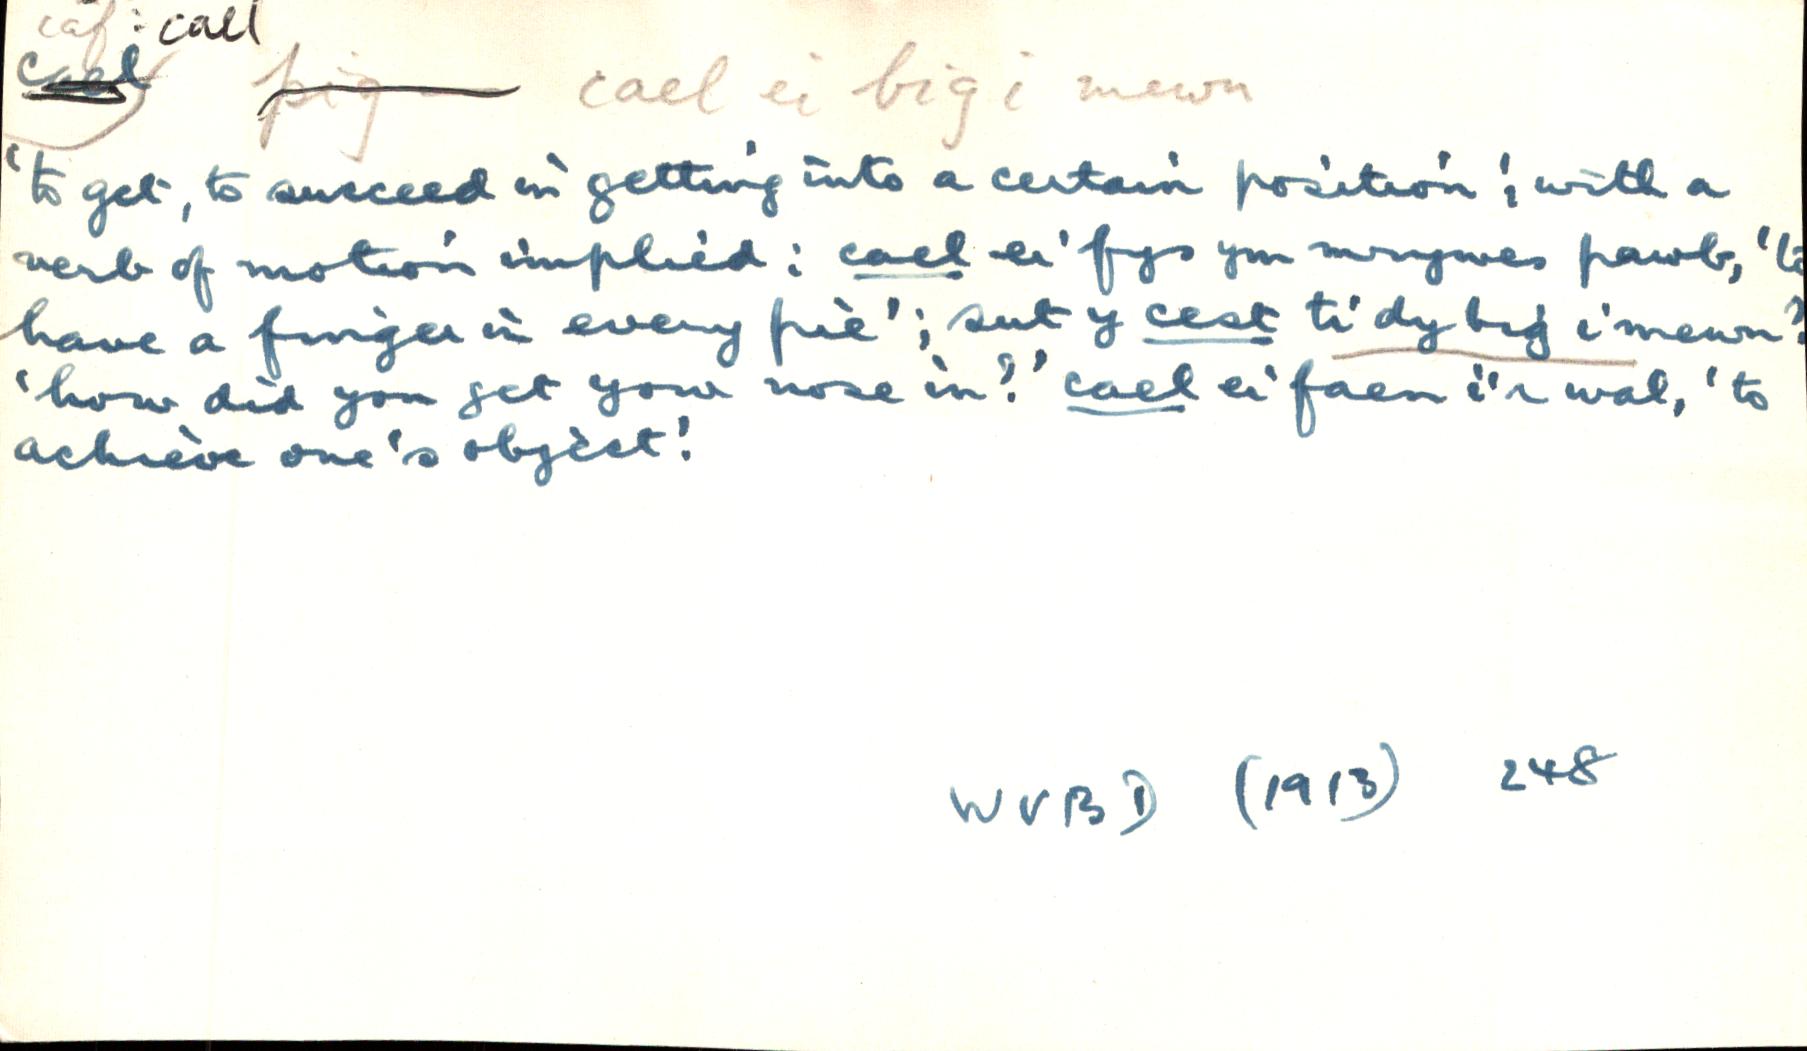 caf : cael
cael pig cael ei big i mewn
'to get, to succeed in getting into a certain position'; with a
verb of motion implied: cael ei fys ym mrywes pawb, 'to
have a finger in every pie'; sut y cest ti dy big i mewn?
'how did you get your nose in?' cael ei faen i'r wal, 'to
achieve one's object'.
WVBD (1913) 248